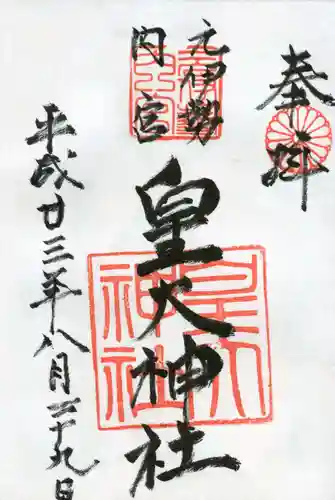 奉拝
元伊勢
内宮
皇大神社
平成廿三年八月二十九日
皇大
神社